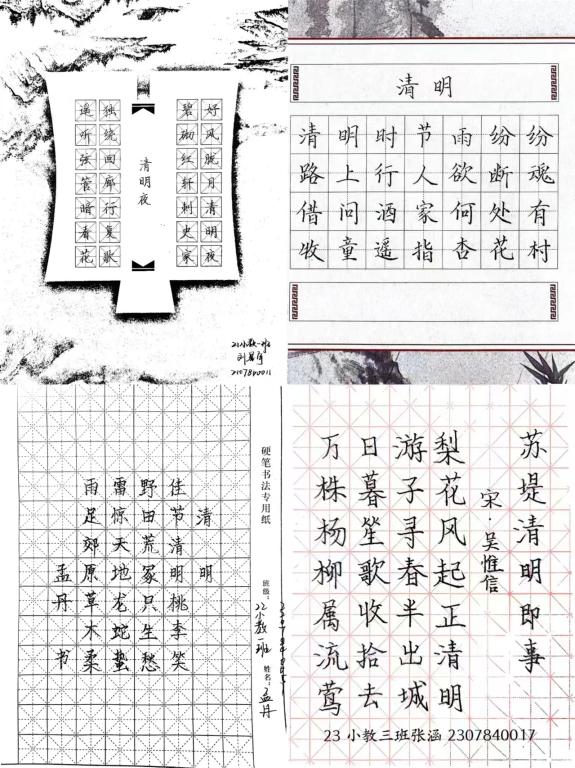 好风胧月清明夜
碧砌红轩刺史家
清明夜
独绕回廊行复歇
遥听弦管暗看花
21小教一班
2107840011
清明
清明时节雨纷纷
路上行人欲断魂
借问酒家何处有
牧童遥指杏花村
硬笔书法专用纸 班级：22小教一班 姓名：孟丹
清明
佳节清明桃李笑
野田荒冢只生愁
雷惊天地龙蛇蛰
雨足郊原草木柔
孟丹书
苏堤清明即事
宋·吴惟信
梨花风起正清明
游子寻春半出城
日暮笙歌收拾去
万株杨柳属流莺
23 小教三班张涵 2307840017